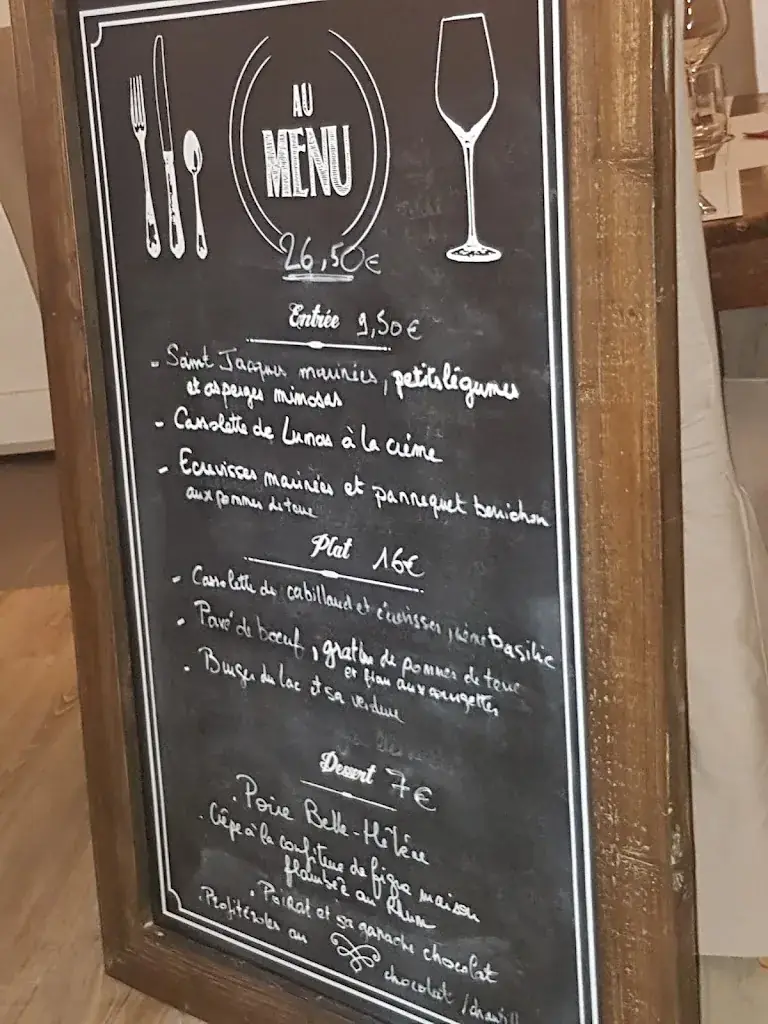 AU
MENU
26,50€
Entrée 9,50€
- Saint Jacques marinées, petits légumes
et asperges mimosas
- Cassolette de Lumas à la crème
- Ecrevisses marinées et pannequet berrichon
aux pommes de terre
Plat 16€
- Cassolette de cabillaud et écrevisses, crème basilic
- Pavé de boeuf, gratin de pommes de terre
et flan aux courgettes
- Burger du lac et sa verdure
Dessert 7€
. Poire Belle-Hélène
. Crêpe à la confiture de figue maison
flambée au Rhum
. Poirat et sa ganache chocolat
. Profiteroles au chocolat / chantill